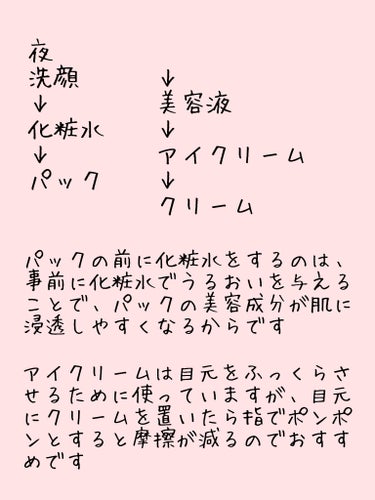 夜
洗顔
↓
化粧水
↓
パック
↓
美容液
↓
アイクリーム
↓
クリーム
パックの前に化粧水をするのは、
事前に化粧水でうるおいを与える
ことで、パックの美容成分が肌に
浸透しやすくなるからです
アイクリームは目元をふっくらさ
せるために使っていますが、目元
にクリームを置いたら指でポンポ
ンとすると摩擦が減るのでおすす
めです